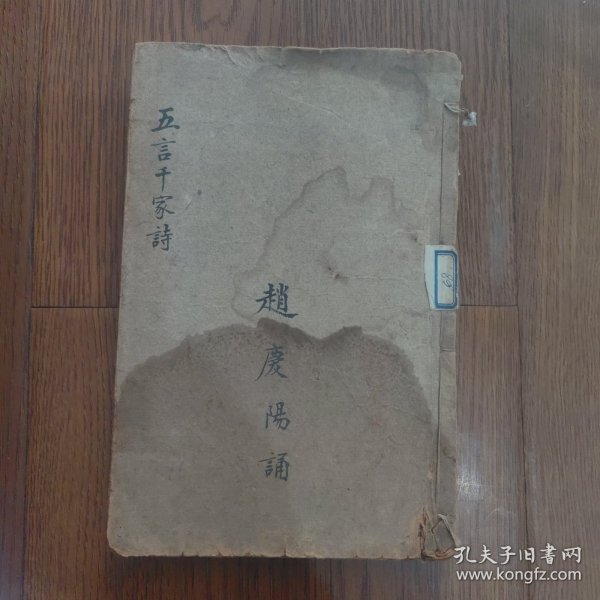 五言千家詩
趙慶陽誦
68
孔夫子旧書网
www.kongfz.com